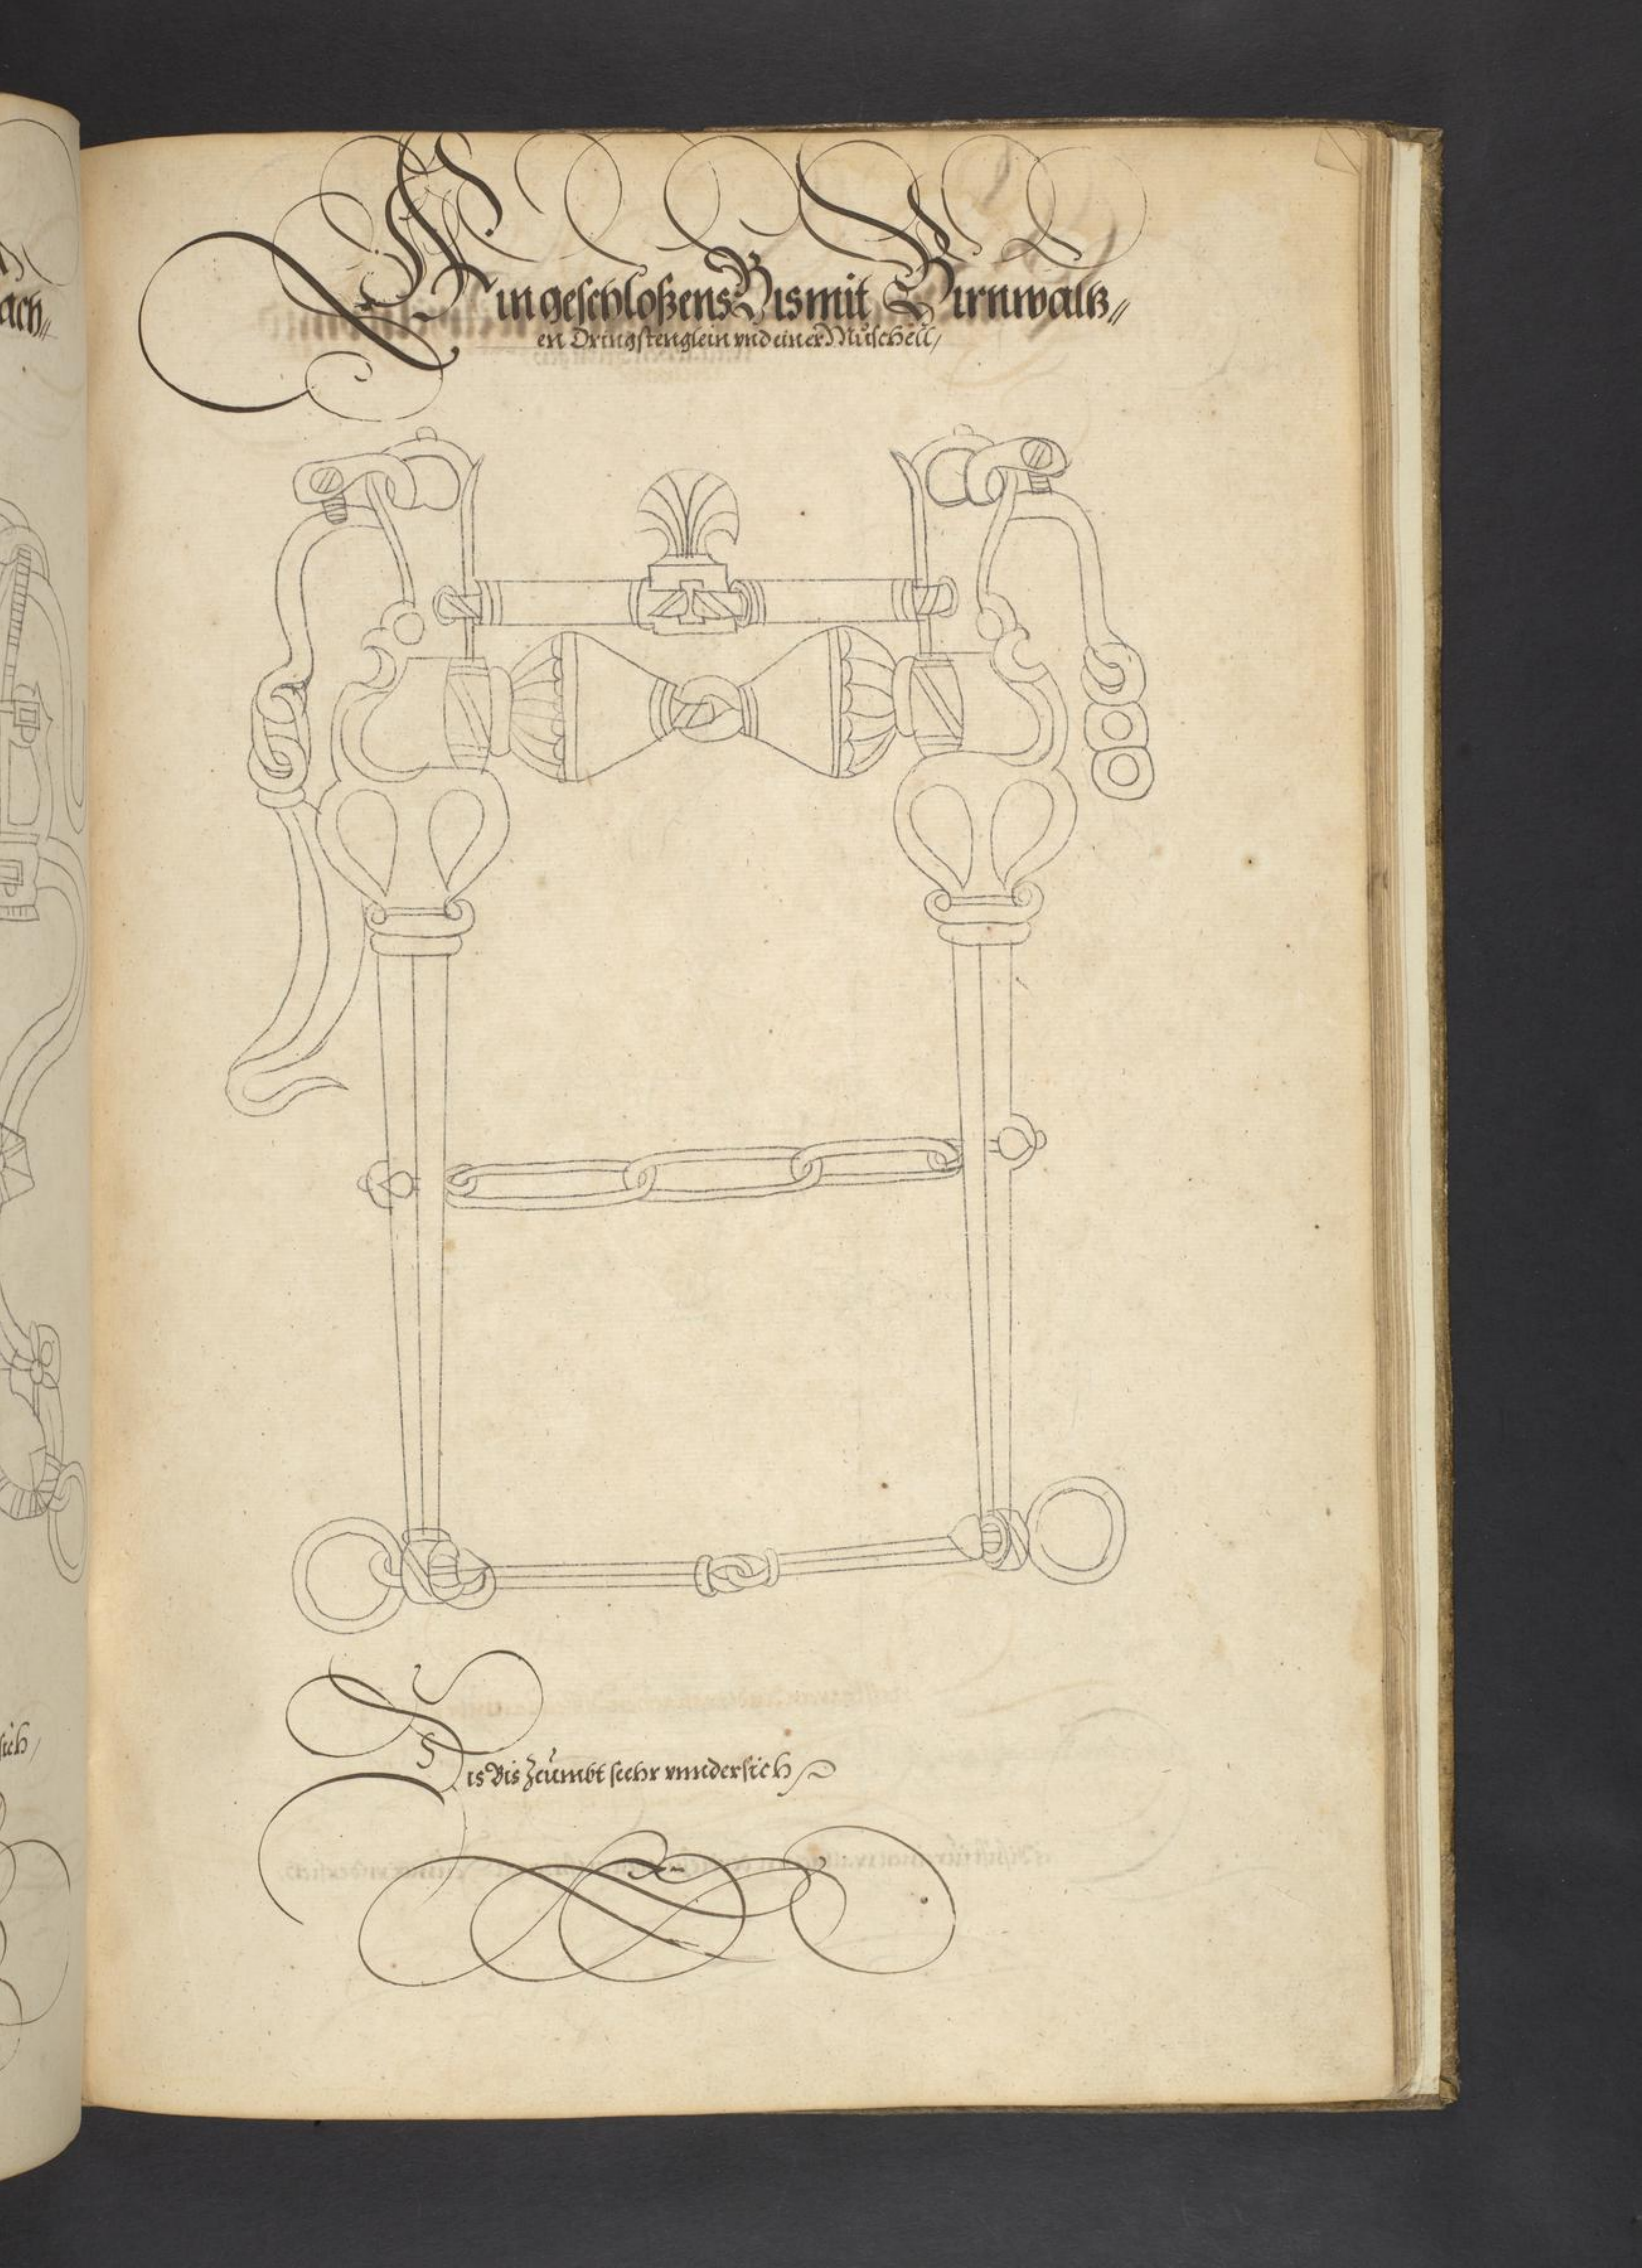 Ein geschloßens Bis mit Birnwaltz„
en Dringstenglein vnd einer Můschell,
Dis Bis Zeümbt seehr vnndersich
ach„
sich,